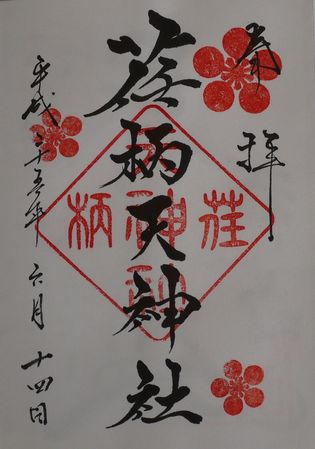 奉拝
荏柄天神社
平成二十五年六月十四日
荏柄
神